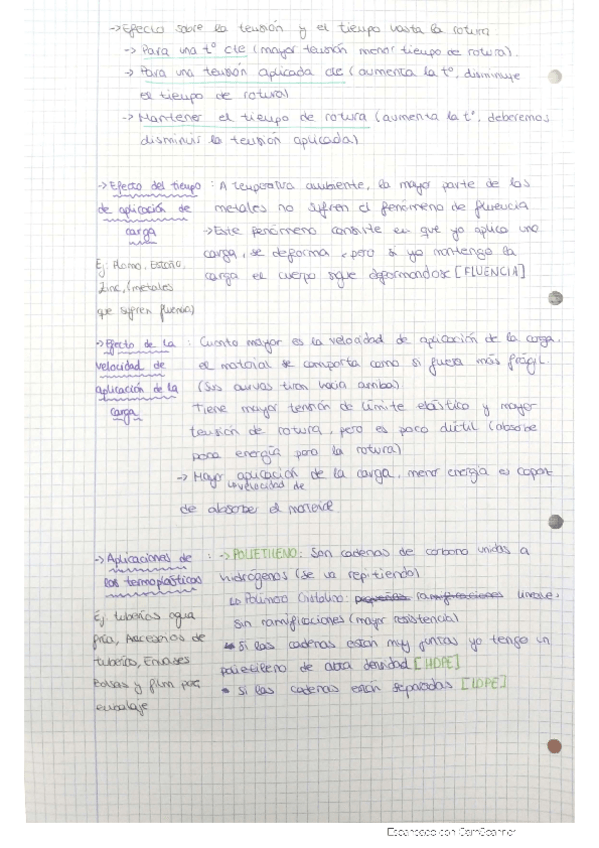 →Efecto sobre la tensión y el tiempo hasta la rotura.
→ Para una tº cte (mayor tensión menor tiempo de rotura).
→ Para una tensión aplicada cte (aumenta la tº, disminuye
el tiempo de rotura)
→ Mantener el tiempo de rotura (aumenta la tº, deberemos
disminuir la tensión aplicada)
→Efecto del tiempo : A temperatura ambiente, la mayor parte de los
de aplicación de metales no sufren el fenómeno de fluencia
carga →Este fenómeno consiste en que yo aplico una
carga, se deforma, pero si yo mantengo la
Ej: Plomo, Estaño, carga el cuerpo sigue deformandose [FLUENCIA]
Zinc, (metales
que sufren fluencia)
→Efecto de la : Cuanto mayor es la velocidad de aplicación de la carga,
velocidad de el material se comporta como si fuera más frágil.
aplicación de la (Sus curvas tiran hacia arriba)
carga Tiene mayor tensión de límite elástico y mayor
tensión de rotura, pero es poco dúctil (absorbe
poca energía para la rotura)
→ Mayor aplicación de la carga, menor energía es capaz
↳velocidad de
de absorber el material
→Aplicaciones de : →POLIETILENO: Son cadenas de carbono unidas a
los termoplásticos hidrógenos (se va repitiendo)
↳ Polímero Cristalino: pequeñas ramificaciones
Ej: tuberías agua sin ramificaciones (mayor resistencia)
fría, Accesorios de • Si las cadenas están muy juntas yo tengo un
tubería, Envases polietileno de alta densidad [HDPE]
Bolsas y film para • Si las cadenas están separadas [LDPE]
embalaje
Escaneado con CamScanner